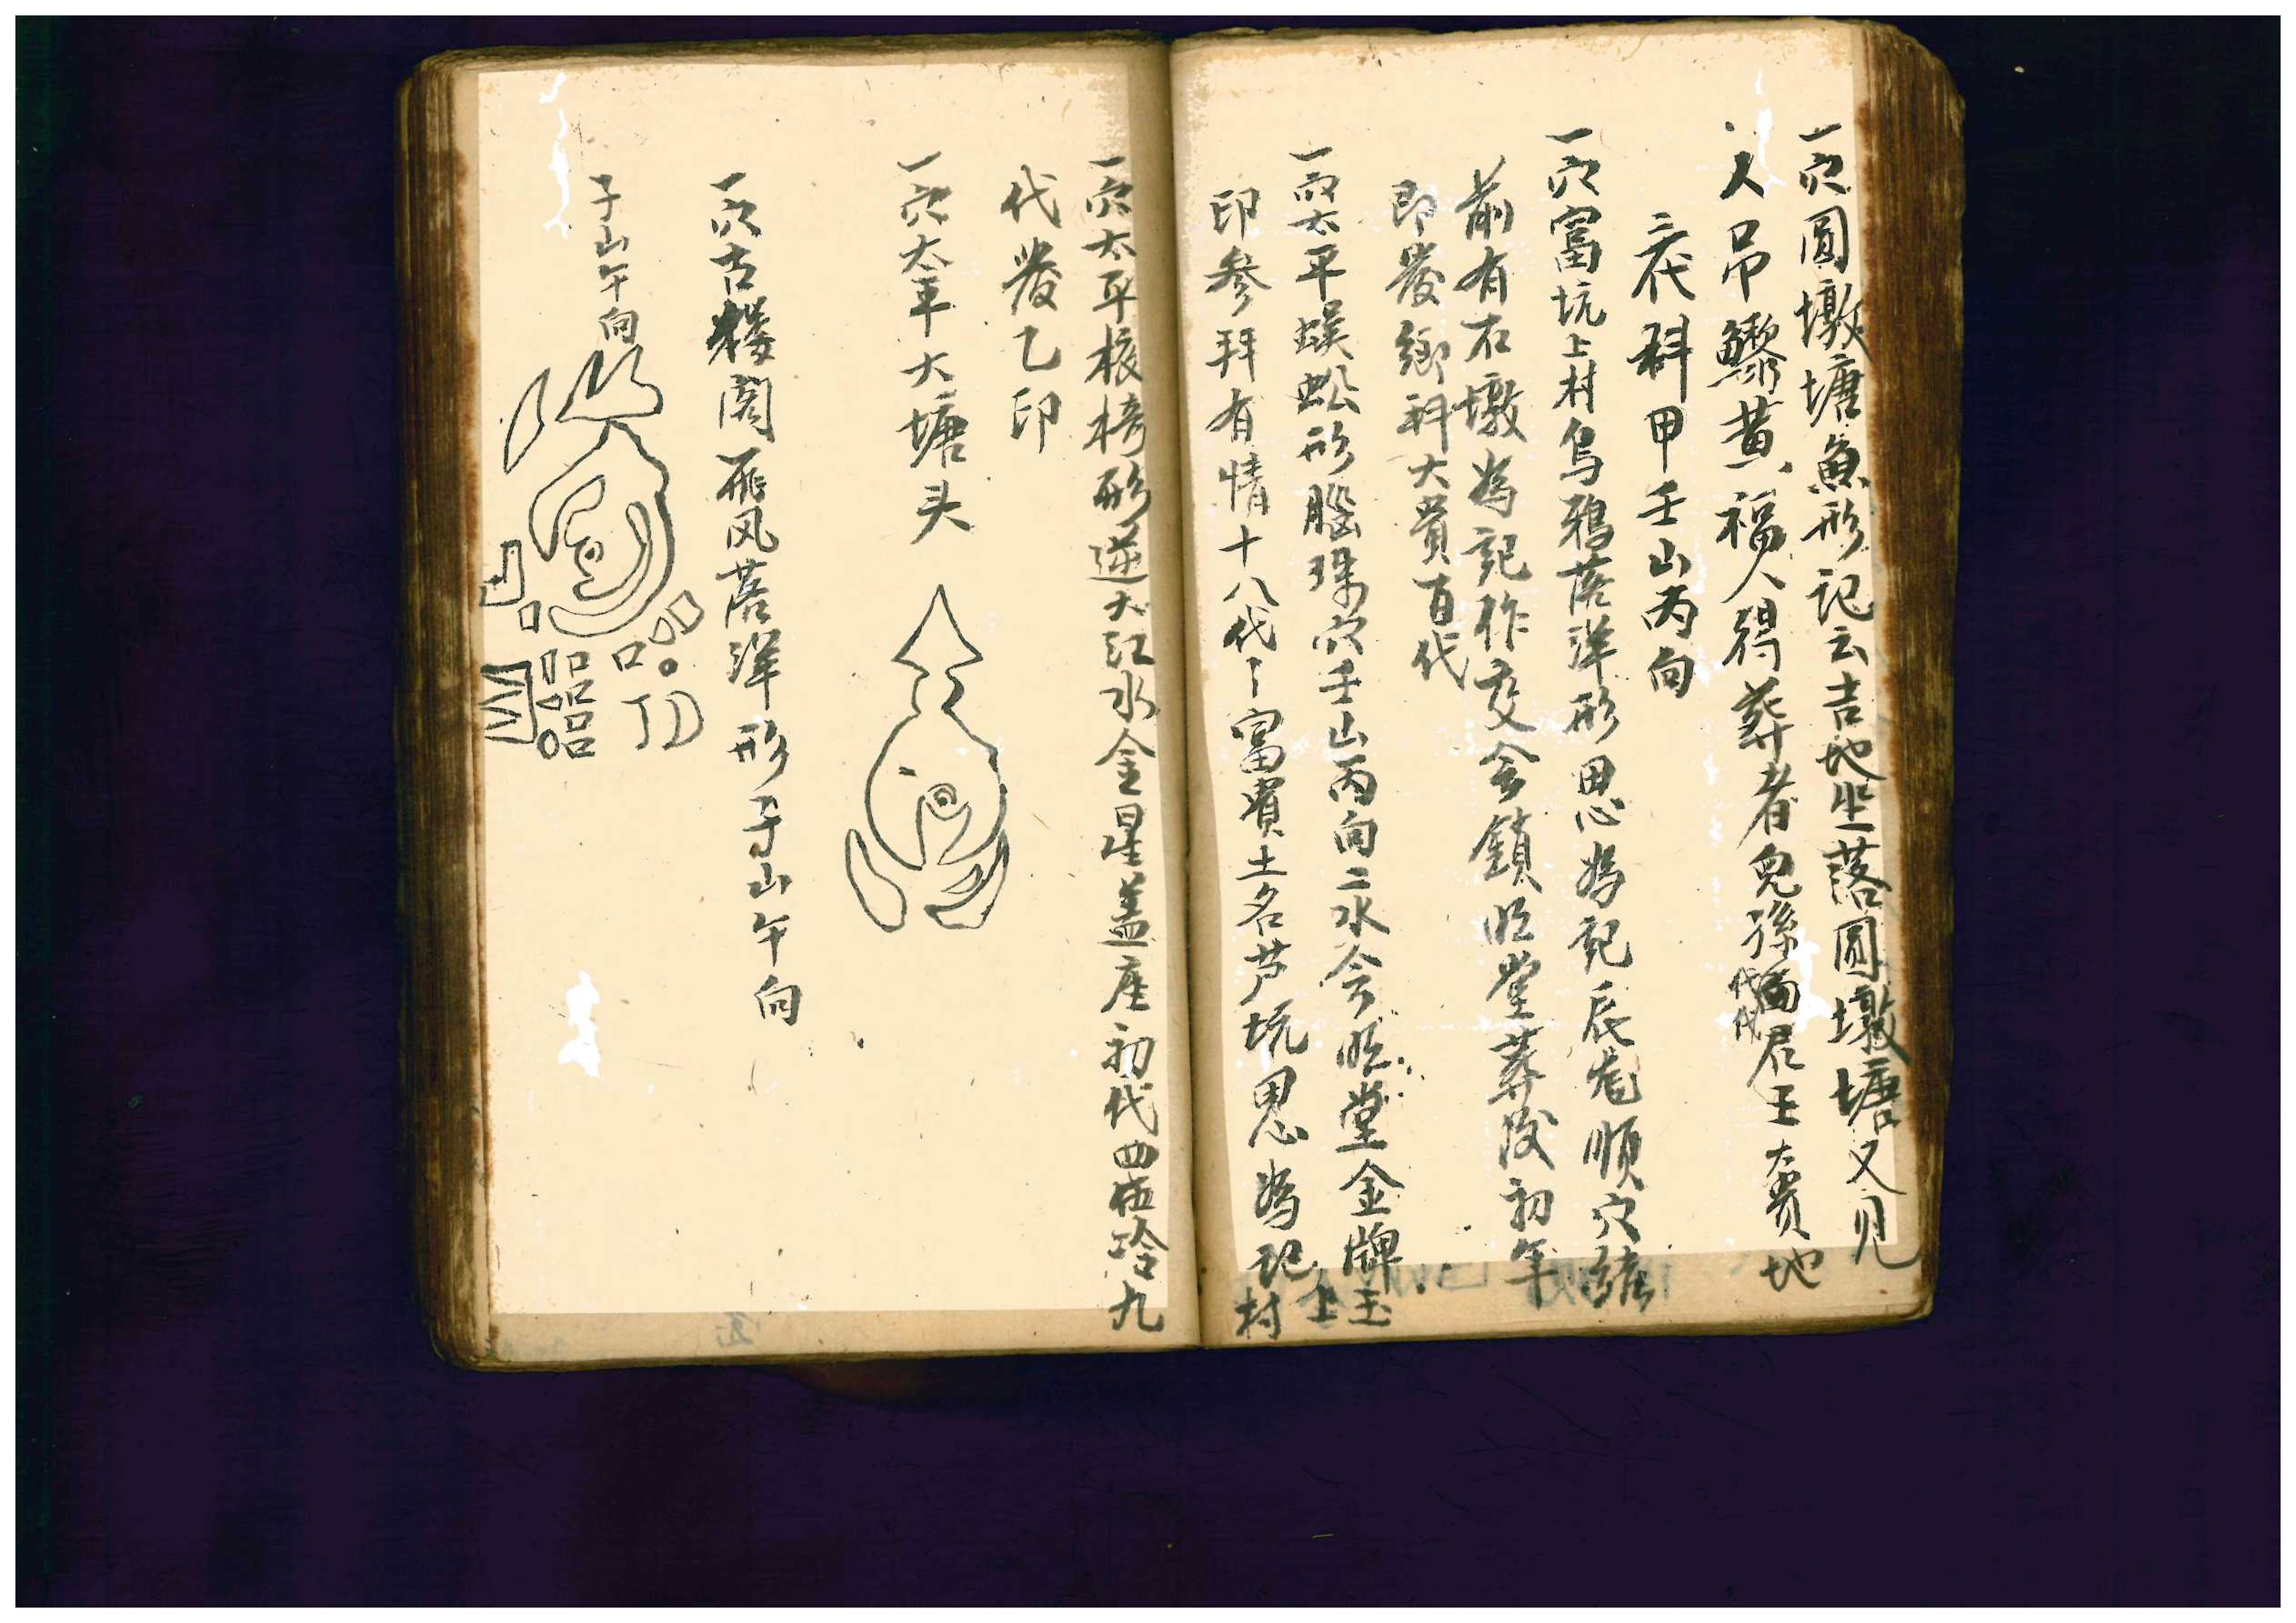 一穴圓墩塘魚形記云吉地坐落圓墩塘又見
人吊鰲黄福人得葬者兒孫代代面君王大貴地
三代科甲壬山丙向
一穴富坑上村烏鴉落洋形思為記辰龙順穴
前有石墩為記作交会鎖明堂葬後初年
即發鄉科大貴百代
一穴太平蜈蚣形腦珠穴壬山丙向二水会明堂金牌玉
印參拜有情十八代富貴土名芦坑思為記上村
一穴太平椅形逆大江水金星盖座初代四九
代發乙印
一穴太平大塘头
一穴古樓閣飛风落洋形子山午向
子山午向